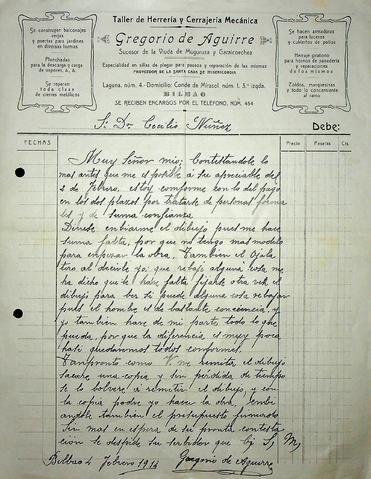 Taller de Herrería y Cerrajería Mecánica
Gregorio de Aguirre
Sucesor de la Viuda de Muguruza y Garaicoechea
Especialidad en sillas de plegar para paseos y reparación de las mismas
PROVEEDOR DE LA SANTA CASA DE MISERICORDIA
Laguna, núm. 4.-Domicilio: Conde de Mirasol, núm. 1, 3.º izqda.
BILBAO
SE RECIBEN ENCARGOS POR EL TELÉFONO, NÚM. 454
Se construyen balconajes
verjas y puertas para jardines
en diversas formas
Planchadas
para la descarga y carga
de vapores, &, &
Se reparan
toda clase
de cierres metálicos
Se hacen armaduras
para lucernas
y cubiertos de patios
Herraje giratorio
para hornos de panadería
y reparaciones
de los mismos
Toldos, marquesinas
y todo lo concerniente
al ramo
S. Dn. Cecilio Núñez
Debe:
FECHAS
Precio
Pesetas
Cts.
Muy Señor mio; Contestandole lo
mas antes que me es posible á su apreciable del
2 de Febrero, estoy conforme con lo del pago
en los dos plazos por tratarse de personas forma
les, y de suma confianza.
enbiarme el dibujo pues me hace
suma falta, por que no tengo mas modelo
para enpesar la obra. Tambien el Ojala
tero al decirle yo; que rebaje alguna cosa, me
ha dicho que le hace falta fijarse otra vez el
dibujo para ber si puede alguna cosa rebajar
pues el hombre es de bastante conciencia, y
yo tambien hare de mi parte todo lo que
pueda, por que la diferencia es muy poca
hasta quedarnos todos conformes.
Tan pronto como V. me remita el dibujo
sacare una copia y sin perdida de tiempo
se lo bolvere á remitir el dibujo, y con
la copia podre yo hacer la obra,
andole tambien el presupuesto
Sin mas en espera de su pronta contesta
ción se despide su serbidor que bj S, M,
Bilbao 4 Febrero 1914
Gregorio de Aguirre